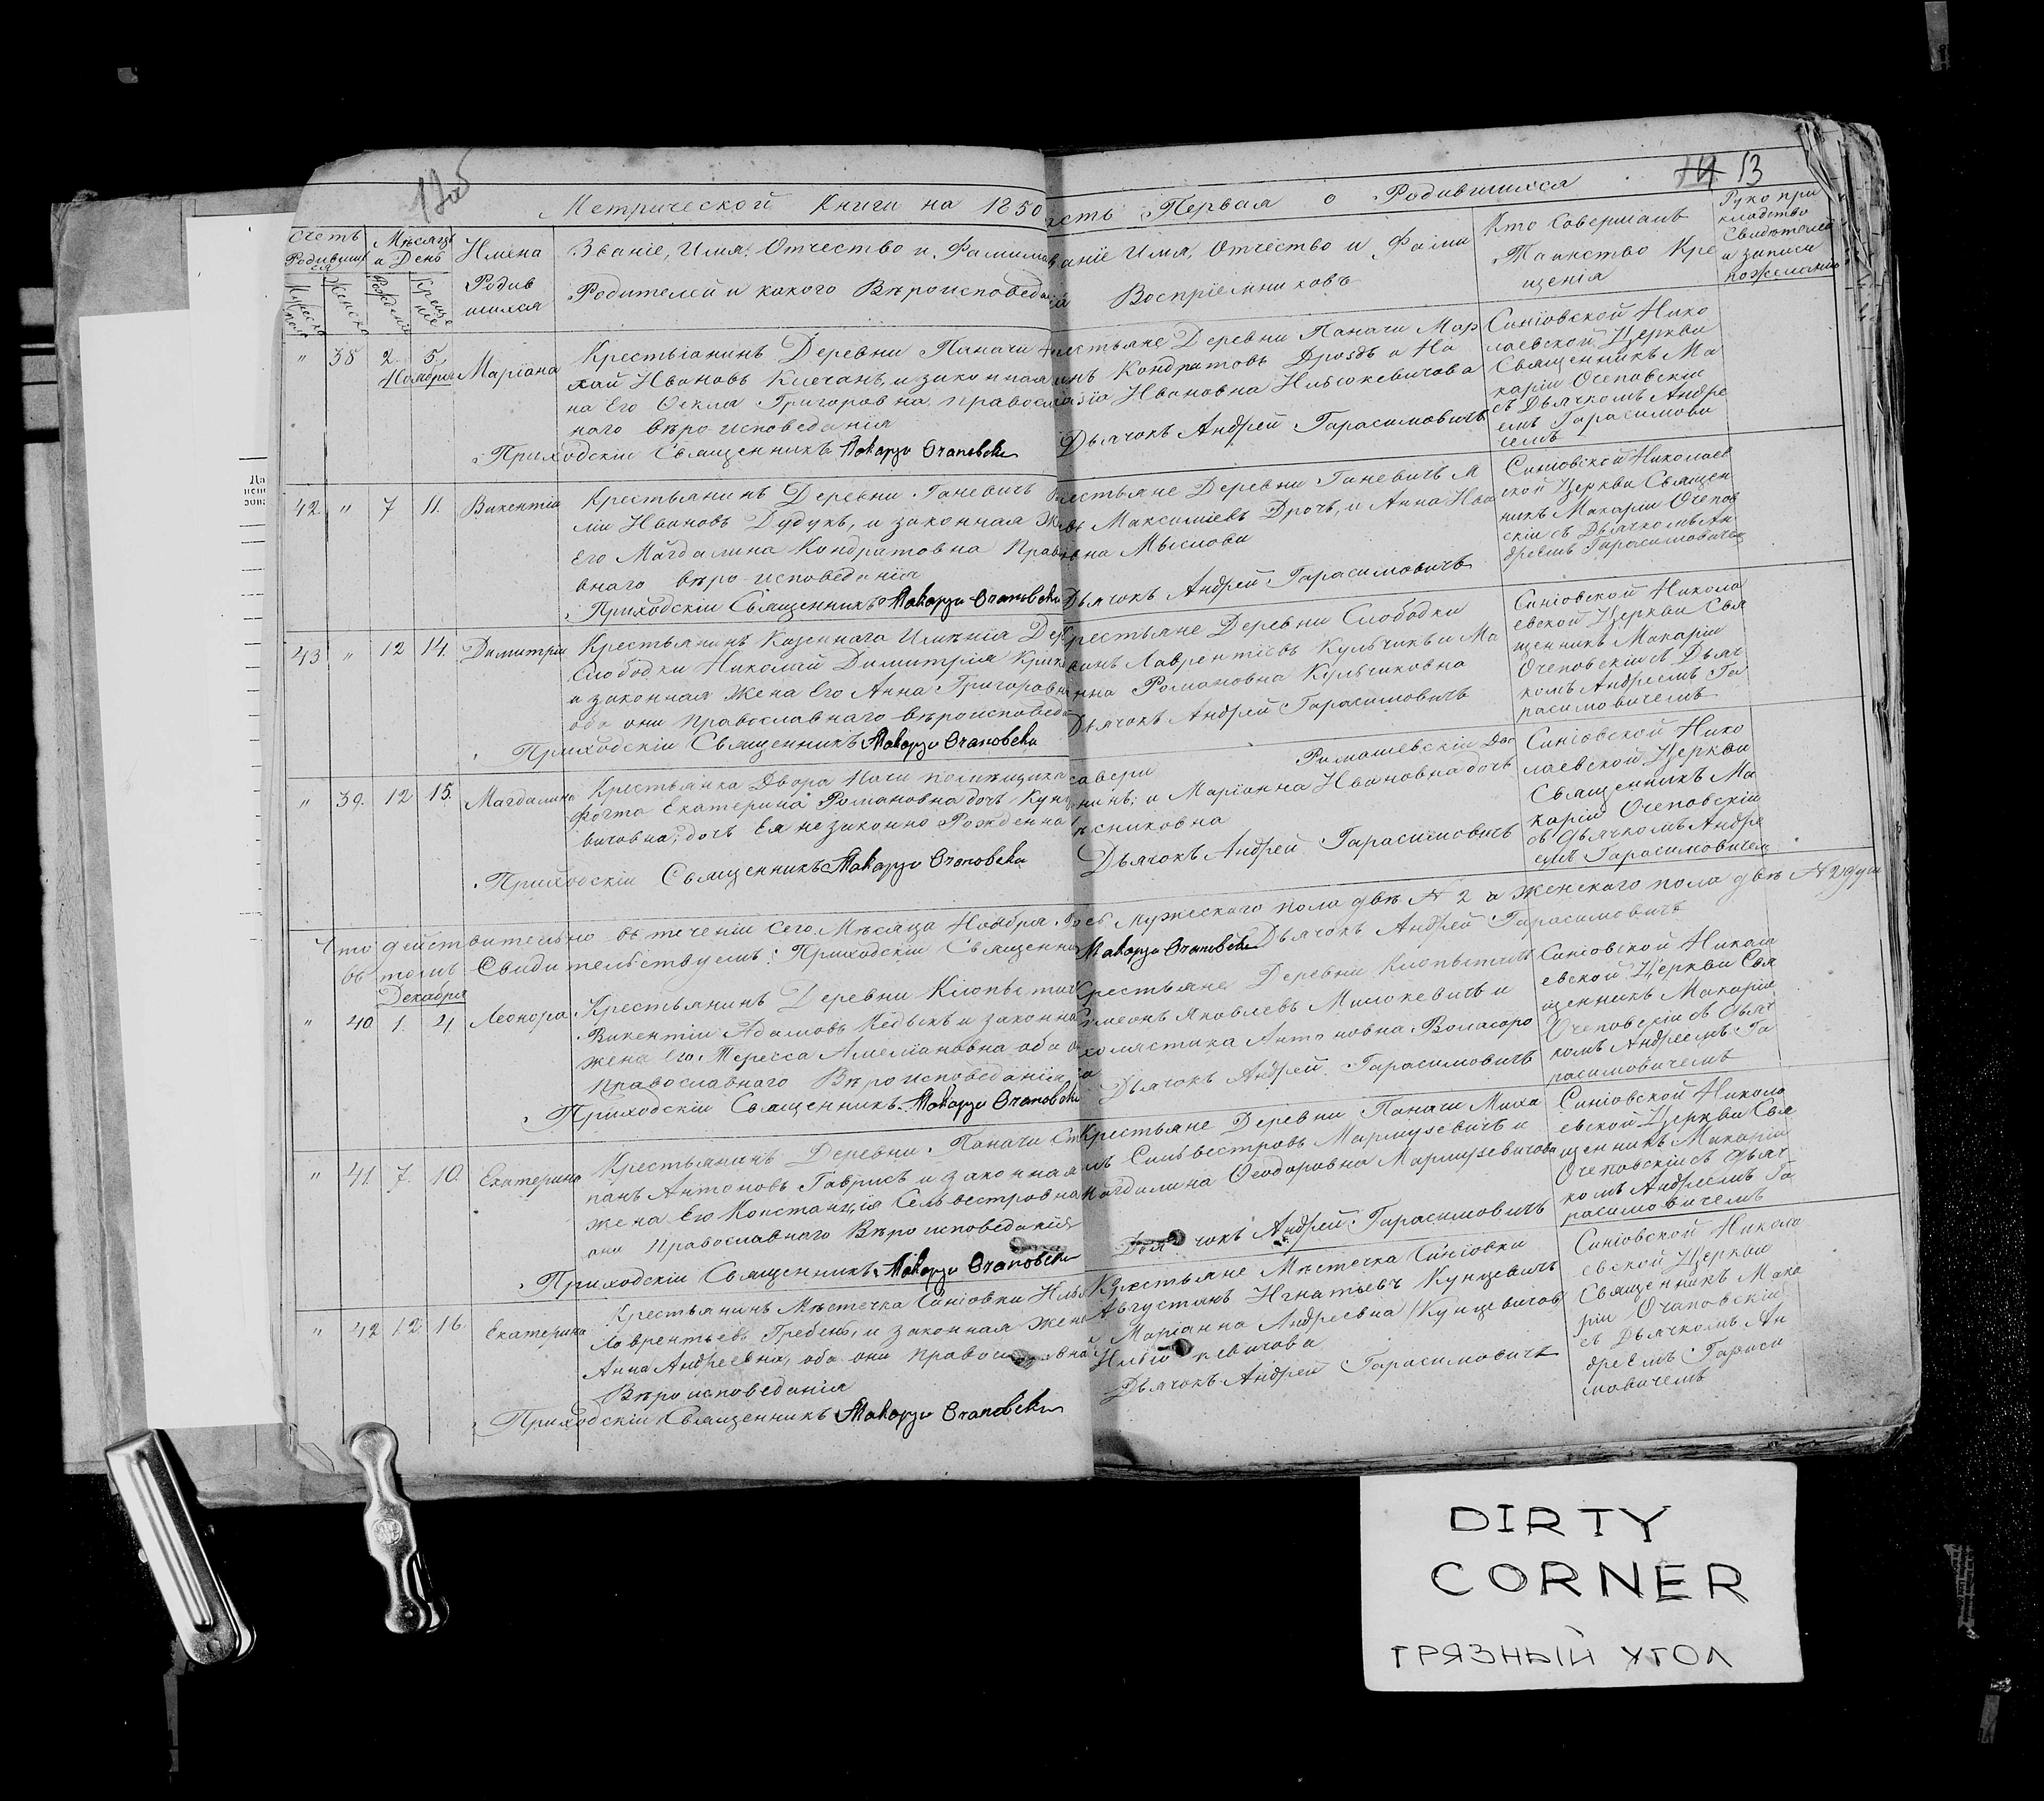 12об
14 13
Метрической Книги на 1850
Часть Первая о Родившихся
Счетъ Родившихся
Мѣсяцъ и День
Имена Родившихся
Званіе, Имя, Отчество и Фамилія
Родителей и какого Вѣроисповеданія
Званіе Имя, Отчество и Фами
Воспріемниковъ
Кто Совершалъ
Таинство Кре
щенія
Руко при
кладство
Свидетелей
и записи
по желанію
Женска
Рожденія
Креще
ніе
" 38 2 5 Ноября Маріана
Крестьянинъ Деревни Паначи
Ивановъ Клечанъ, и законная
на Его Фекла Григоровна, Православ
наго Вѣроисповеданія
Приходскій Священникъ Макарій Очаповскій
Крестьяне Деревни Паначи Мар
инъ Кондратовъ Дроздъ и На
Ивановна Ильюкевичова
Дьячокъ Андрей Гарасимовичъ
Синіовской Нико
лаевской Церкви
Священникъ Ма
карій Очеповскій
съ Дьячкомъ Андре
емъ Гарасимови
чемъ
42 " 7 11 Викентій
Крестьянинъ Деревни Ганевичъ
Ивановъ Дудукъ, и законная Же
Его Магдалина Кондратовна Прав
внаго вѣроисповеданія
Приходскій Священникъ Макарій Очаповскій
Крестьяне Деревни Ганевичъ М
Максиміевъ Дрочъ, и Анна Ива
вна Мыслова
Дьячокъ Андрей Гарасимовичъ
Синіовской Николаев
ской Церкви Священ
никъ Макарій Очепов
скій съ Дьячкомъ Ан
дреемъ Гарасимовичем
43 " 12 14 Димитрій
Крестьянинъ Казеннаго Имѣнія Дер
Слободки Николай Димитрія
и законная Жена Его Анна Григоровна
оба они Православнаго Вѣроисповеда
Приходскій Священникъ Макарій Очаповскій
Крестьяне Деревни Слободки
Лаврентіевъ Кульчикъ и Ма
Романовна Кульчиковна
Дьячокъ Андрей Гарасимовичъ
Синіовской Никола
евской Церкви Свя
щенникъ Макарій
Очеповскій съ Дьяч
комъ Андреемъ Га
расимовичемъ
" 39. 12 15. Магдалина
Крестьянка Двора Начи помѣщика
Екатерина Романовна дочь
вичовна, дочь Ея незаконно Рожденна
Приходскій Священникъ Макарій Очаповскій
Ромашевскій
и Маріанна Ивановна дочь
Дьячокъ Андрей Гарасимовичъ
Синіовской Нико
лаевской Церкви
Священникъ Ма
карій Очеповскій
съ Дьячкомъ Андре
емъ Гарасимовичем
Что действительно въ теченіи сего Мѣсяца Ноября
мужескаго пола двѣ № 2 а женскаго пола двѣ № 2 душ
въ томъ Свидительствуемъ: Приходскій Священни
Макарій Очаповскій Дьячокъ Андрей Гарасимовичъ
Декабря
" 40 1. 4. Леонора
Крестьянинъ Деревни
Викентій Адамовъ и законна
жена Его Тересса Амеліановна оба о
Православнаго Вѣроисповеданія
Приходскій Священникъ Макарій Очаповскій
Крестьяне Деревни
Симеонъ Яковлевъ Милюкевичъ и
Антоновна
Дьячокъ Андрей Гарасимовичъ
Синіовской Никола
евской Церкви Свя
щенникъ Макарій
Очеповскій съ Дьяч
комъ Андреемъ Га
расимовичемъ
" 41. 7. 10. Екатерина
Крестьянинъ Деревни Паначи Сте
панъ Антоновъ Гаврисъ и законная
жена Его Констанція Сельвестровна
они Православнаго Вѣроисповеданія
Приходскій Священникъ Макарій Очаповскій
Крестьяне Деревни Паначи Миха
лъ Сильвестровъ Мармузевичъ и
Магдалина Феодоровна Мармузевичова
Дьячокъ Андрей Гарасимовичъ
Синіовской Никола
евской Церкви Свя
щенникъ Макарій
Очеповскій съ Дьяч
комъ Андреемъ Га
расимовичемъ
" 42 12 16. Екатерина
Крестьянинъ Мѣстечка Синіовки Илья
Лаврентьевъ Гребень, и законная Жена
Анна Андреевна, оба они Православна
Вѣроисповеданія
Приходскій Священникъ Макарій Очаповскій
Крестьяне Мѣстечка Синіовки
Августинъ Игнатьевъ Кунцевичъ
Маріанна Андреевна Кунцевичов
Дьячокъ Андрей Гарасимовичъ
Синіовской Никола
евской Церкви
Священникъ Мака
рій Очаповскій
съ Дьячкомъ Ан
дреемъ Гараси
мовичемъ
DIRTY
CORNER
ГРЯЗНЫЙ УГОЛ